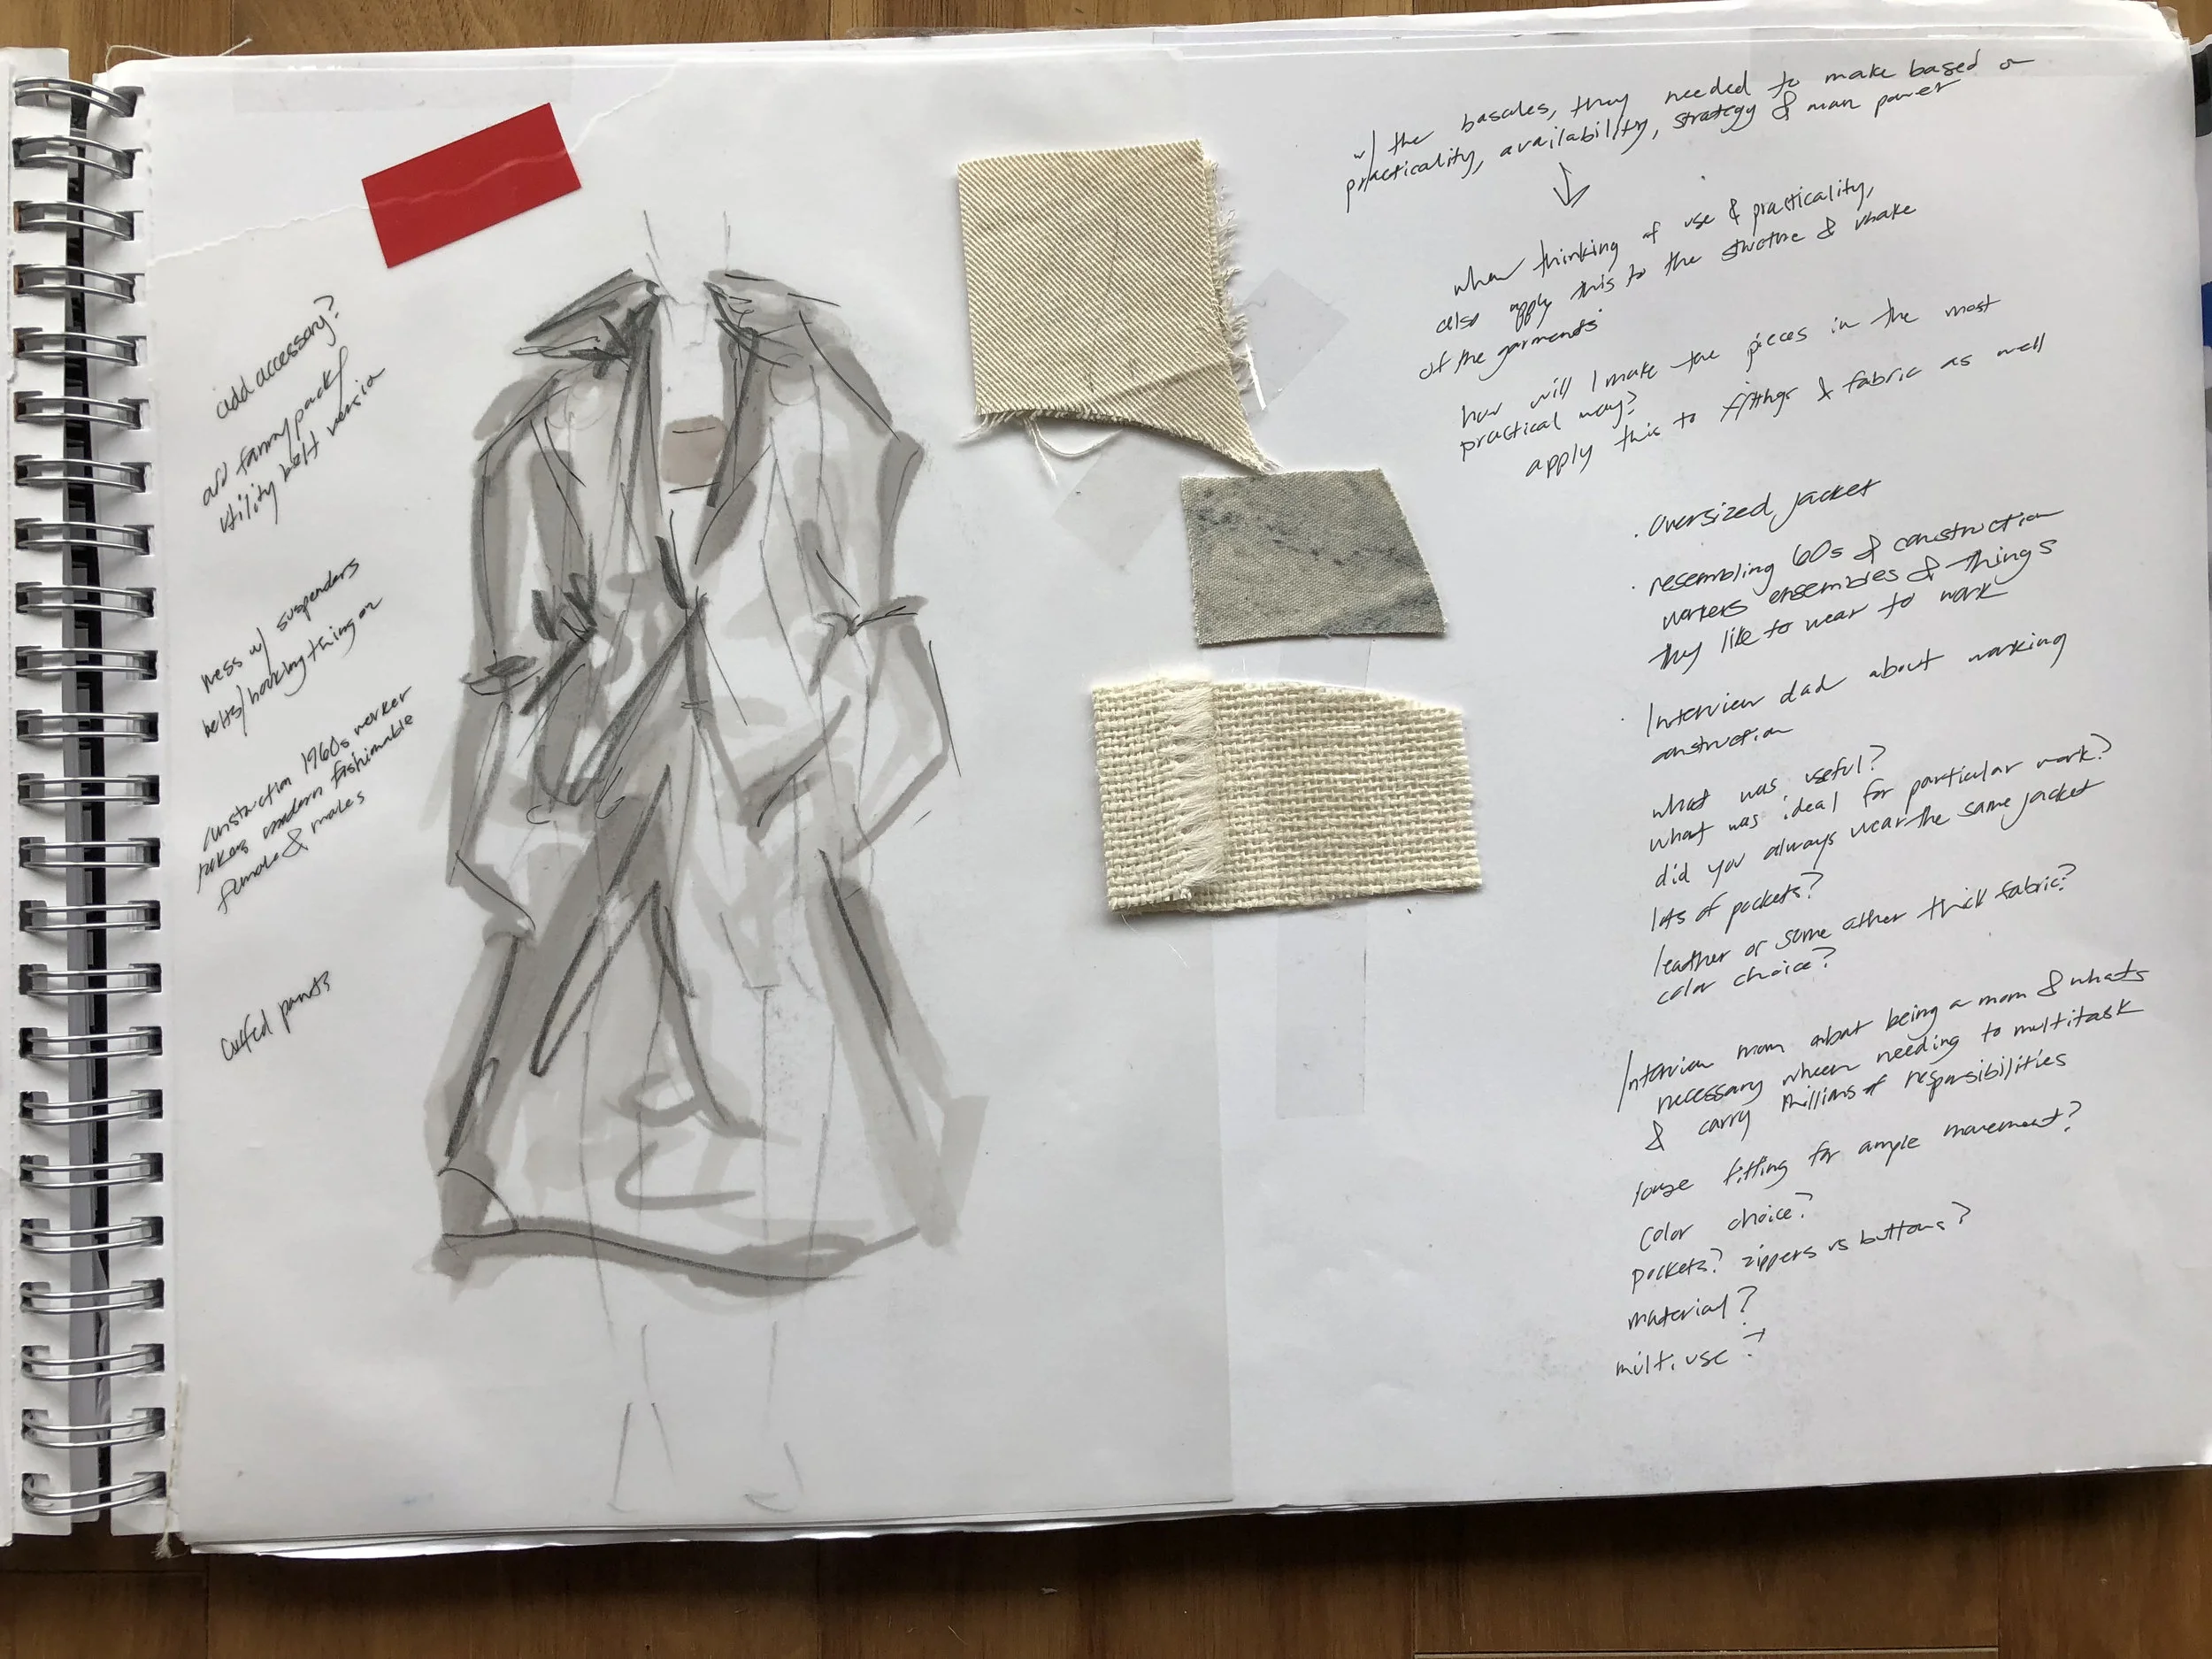 add accessory?
add fanny pack /
utility belt version
w/ suspenders
belts/hooking thing on
construction 1960s worker
modern fashionable
female & males
cuffed pants
w/ the basales, they needed to make based on
practicality, availability, strategy & man power
when thinking of use & practicality,
also apply this to the structure & make
of the garments
how will I make the pieces in the most
practical way?
apply this to fittings & fabric as well
· oversized jacket
· resembling 60s & construction
workers ensembles & things
they like to wear to work
· Interview dad about working
construction
what was useful?
what was ideal for particular work?
did you always wear the same jacket
lots of pockets?
leather or some other thick fabric?
color choice?
Interview mom about being a mom & whats
necessary when needing to multitask
& carry millions of responsibilities
loose fitting for ample movement?
color choice?
pockets? zippers vs buttons?
material?
multi use?